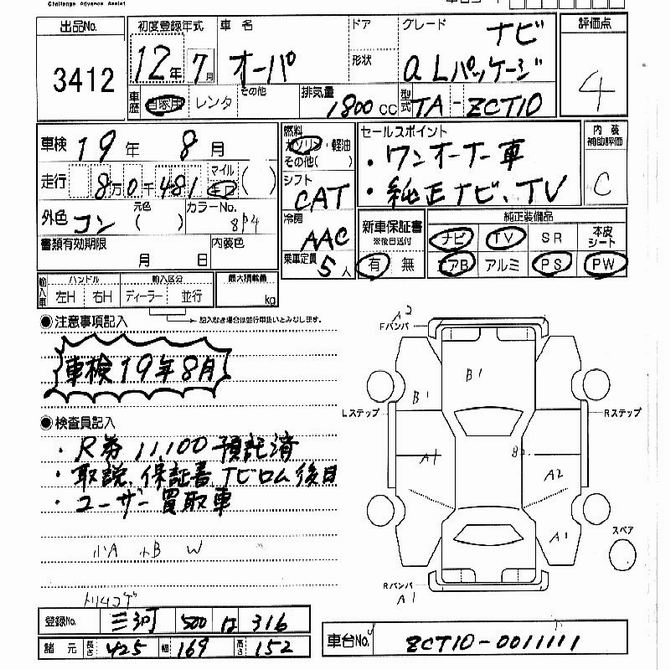 Challenge Advance Assist
出品No. 初度登録年式 車名 ドア グレード 評価点
3412 12年 7月 オーパ 形状 ナビ aLパッケージ 4
車歴 自家用 レンタ その他 排気量 1800cc 型式 TA-ZCT10
車検 19年 8月 燃料 ガソリン・軽油 その他( ) セールスポイント 内装補助評価
・ワンオーナー車 C
走行 8万0千481 マイル キロ ( ) シフト CAT ・純正ナビ、TV
外色 コン 元色 ( ) カラーNo. 8P4 冷房 AAC 新車保証書 ※後日送付 純正装備品
ナビ TV SR 本皮シート
書類有効期限 月 日 内装色 乗車定員 5人 有 無 AB アルミ PS PW
輸入車 ハンドル 左H 右H 輸入区分 ディーラー 並行 最大積載量 kg
●注意事項記入 記入なき場合は並行用扱いとみなします。
車検19年8月
●検査員記入
・R券 11,100 預託済
・取説、保証書 TVロム後日
・ユーザー買取車
小A 小B W
A2
Fバンパ
B1
B1
Lステップ Rステップ
A1
B2
A2
A1
スペア
Rバンパ
A1
登録No. 三河 500 は 316
諸元 長さ 425 幅 169 高さ 152
車台No. ZCT10-0011111